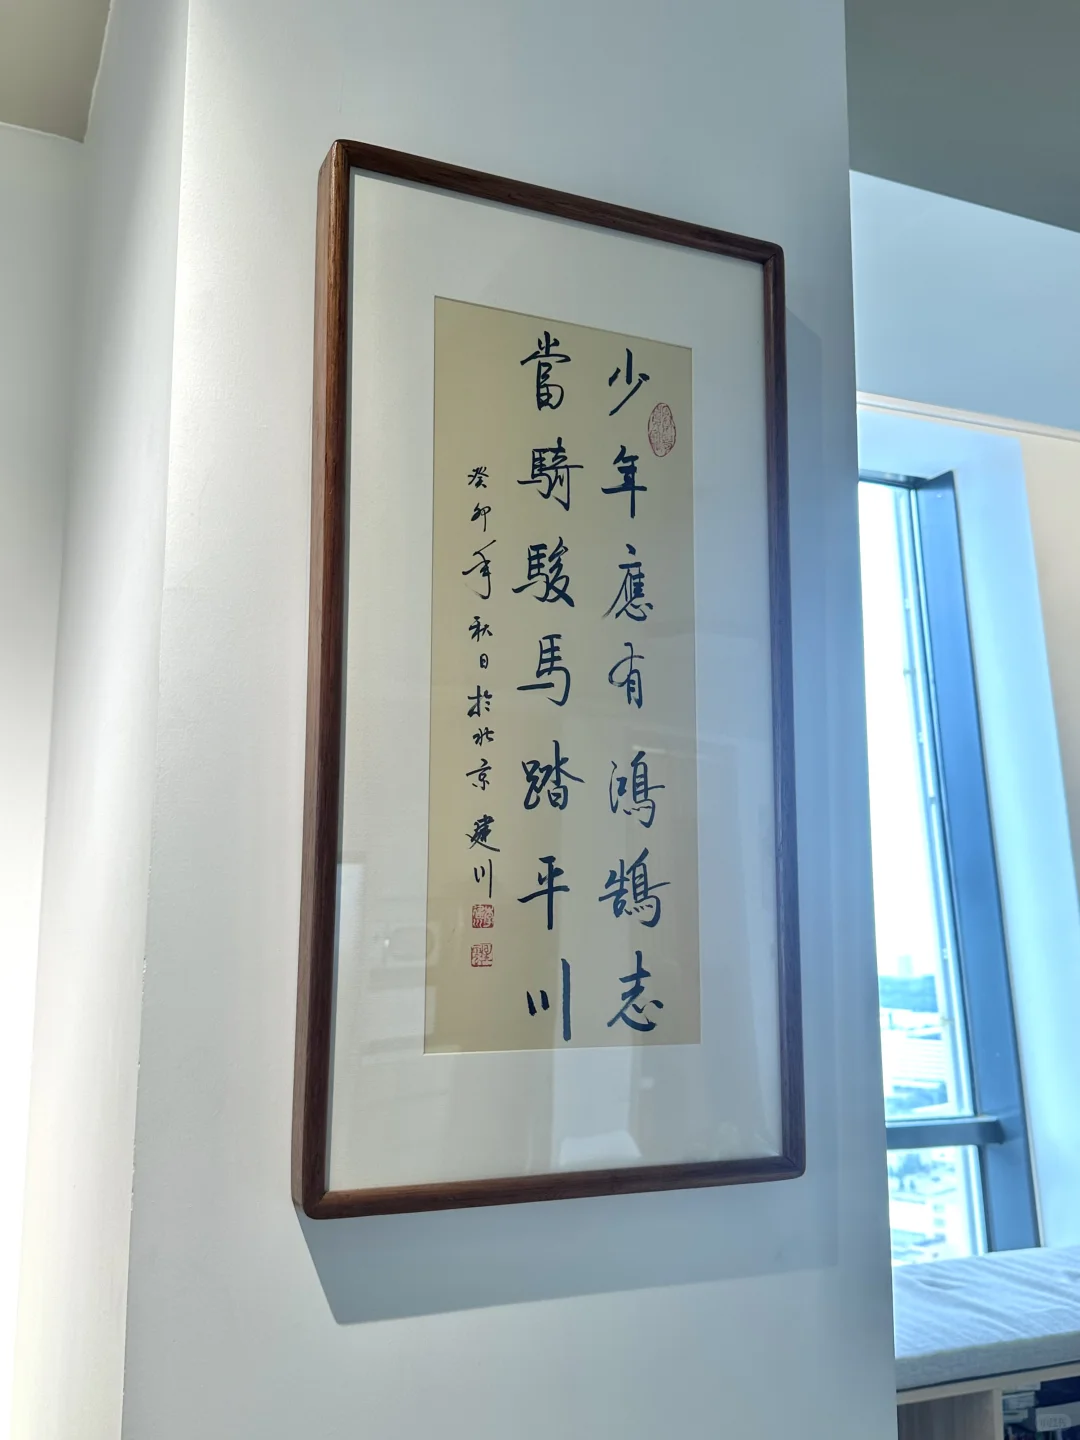 少年應有鴻鵠志
當騎駿馬踏平川
癸卯年秋日於北京建川